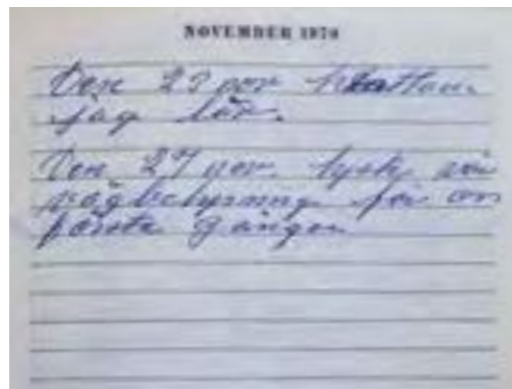 NOVEMBER 1970
Den 23 nov
jag
Den 27 nov. lyste vår
vägbelysning för
första gången